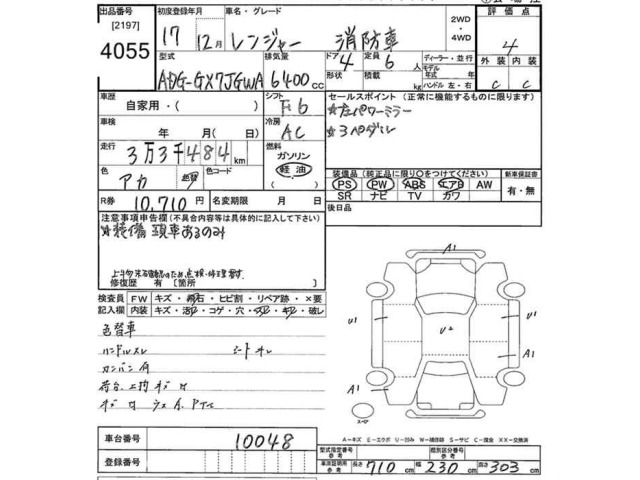 出品番号 初度登録年月 車名・グレード 2WD・4WD 評価点
[2197]
4055 17年 12月 レンジャー 消防車 4
型式 排気量 ドア 4 定員 6人 ディーラー・並行 外装 内装
ADG-GX7JGWA 6400cc 形状 積載 kg モデル年式 年式 ハンドル 左・右 C C
車歴 自家用・( ) シフト F6 セールスポイント (正常に機能するものに限ります)
車検 年 月(日) 冷房 AC ☆左パワーミラー
☆3ペダル
走行 3万3千484km 燃料 ガソリン 軽油
色 アカ 色コード
装備品 (純正品に限り〇をつけてください) 新車保証書
PS PW ABS エアB AW 有・無
SR ナビ TV カワ
R券 10,710円 名変期限 月 日 後日品
注意事項申告欄 (不具合内容等は具体的に記入して下さい)
☆装備 現車あるのみ
修復歴 有 [箇所 ]
検査員 FW キズ・飛石・ヒビ割・リペア跡・×要
記入欄 内装 キズ・コゲ・穴・キレ・破レ
色替車
ハンドルスレ シートキレ
カンバン有
A1
U1 U2 U1
A1
A1
スペア
A-キズ E-エクボ U-凹み W-補修跡 S-サビ C-腐食 XX-交換済
車台番号 10048
登録番号
型式指定番号 参考 類別区分番号 参考
車庫証明用 参考 長さ 710cm 幅 230cm 高さ 303cm